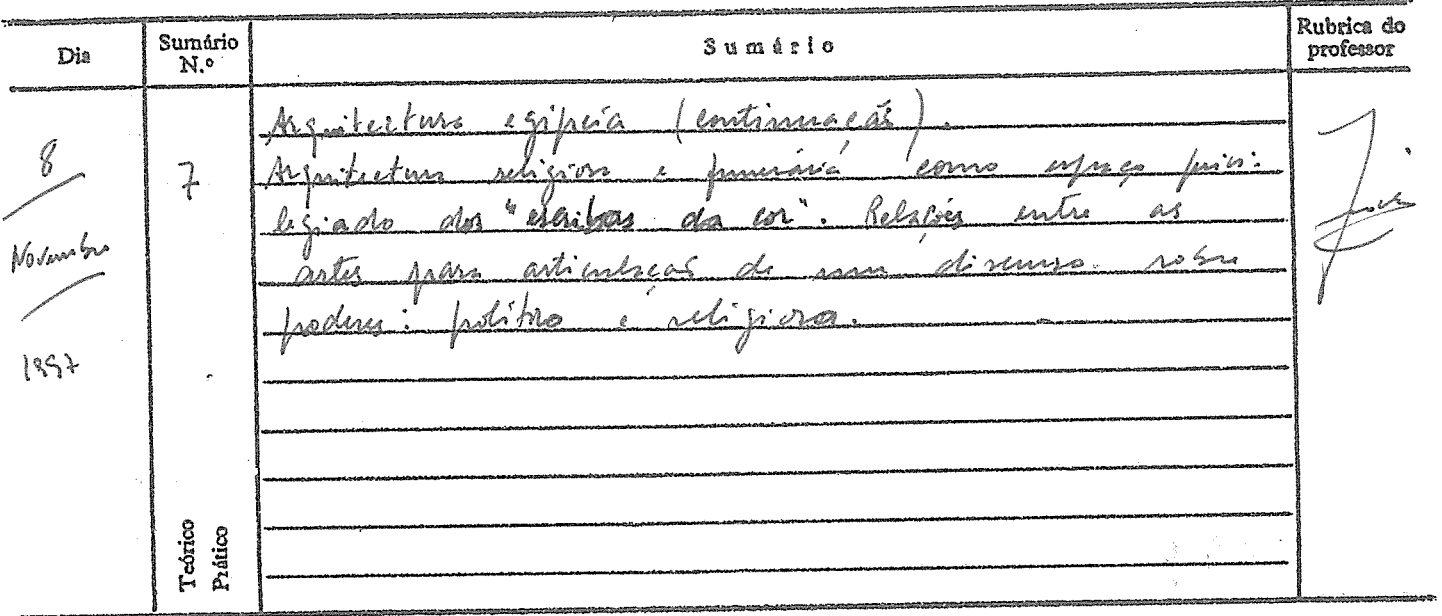 Dia
Sumário N.º
Sumário
Rubrica do professor
8
Novembro
1997
7
Arquitectura egípcia (continuação).
Arquitectura religiosa e funerária como espaço privi-
legiado dos "escribas da cor". Relações entre as
artes para articulação de um discurso sobre
poderes: político e religioso.
Teórico
Prático